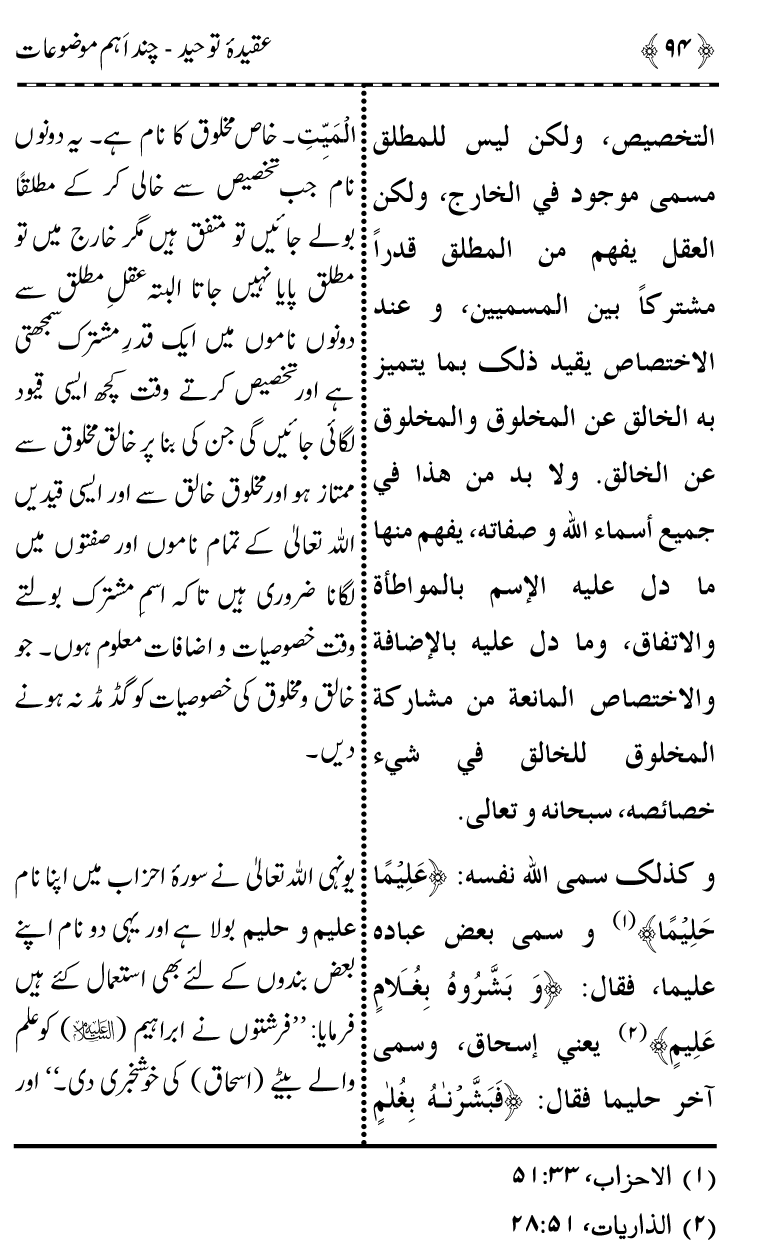 ﴿۹۴﴾ عقیدۂ توحید - چند اَہم موضوعات
التخصيص، ولكن ليس للمطلق
مسمى موجود في الخارج، ولكن
العقل يفهم من المطلق قدراً
مشتركاً بين المسميين، و عند
الاختصاص يقيد ذلك بما يتميز
به الخالق عن المخلوق والمخلوق
عن الخالق. ولا بد من هذا في
جميع أسماء الله و صفاته، يفهم منها
ما دل عليه الإسم بالمواطأة
والاتفاق، وما دل عليه بالإضافة
والاختصاص المانعة من مشاركة
المخلوق للخالق في شيء
خصائصه، سبحانه و تعالى.
و كذلك سمى الله نفسه: ﴿عَلِيْمًا
حَلِيْمًا﴾(۱) و سمى بعض عباده
عليما، فقال: ﴿وَ بَشَّرُوهُ بِغُلَامٍ
عَلِيمٍ﴾(۲) يعني إسحاق، وسمى
آخر حليما فقال: ﴿فَبَشَّرْنٰهُ بِغُلٰمٍ
الْمَيِّتِ۔ خاص مخلوق کا نام ہے۔ یہ دونوں
نام جب تخصیص سے خالی کر کے مطلقًا
بولے جائیں تو متفق ہیں مگر خارج میں تو
مطلق پایا نہیں جاتا البتہ عقل مطلق سے
دونوں ناموں میں ایک قدرِ مشترک سمجھتی
ہے اور تخصیص کرتے وقت کچھ ایسی قیود
لگائی جائیں گی جن کی بنا پر خالق مخلوق سے
ممتاز ہو اور مخلوق خالق سے اور ایسی قیدیں
اللہ تعالیٰ کے تمام ناموں اور صفتوں میں
لگانا ضروری ہیں تاکہ اسمِ مشترک بولتے
وقت خصوصیات و اضافات معلوم ہوں۔ جو
خالق و مخلوق کی خصوصیات کو گڈ مڈ نہ ہونے
دیں۔
یونہی اللہ تعالیٰ نے سورۂ احزاب میں اپنا نام
علیم و حلیم بولا ہے اور یہی دو نام اپنے
بعض بندوں کے لئے بھی استعمال کئے ہیں
فرمایا: ’’فرشتوں نے ابراہیم (علیہ السلام) کو علم
والے بیٹے (اسحاق) کی خوشخبری دی۔‘‘ اور
(۱) الاحزاب، ۳۳:۵۱
(۲) الذاریات، ۵۱:۲۸